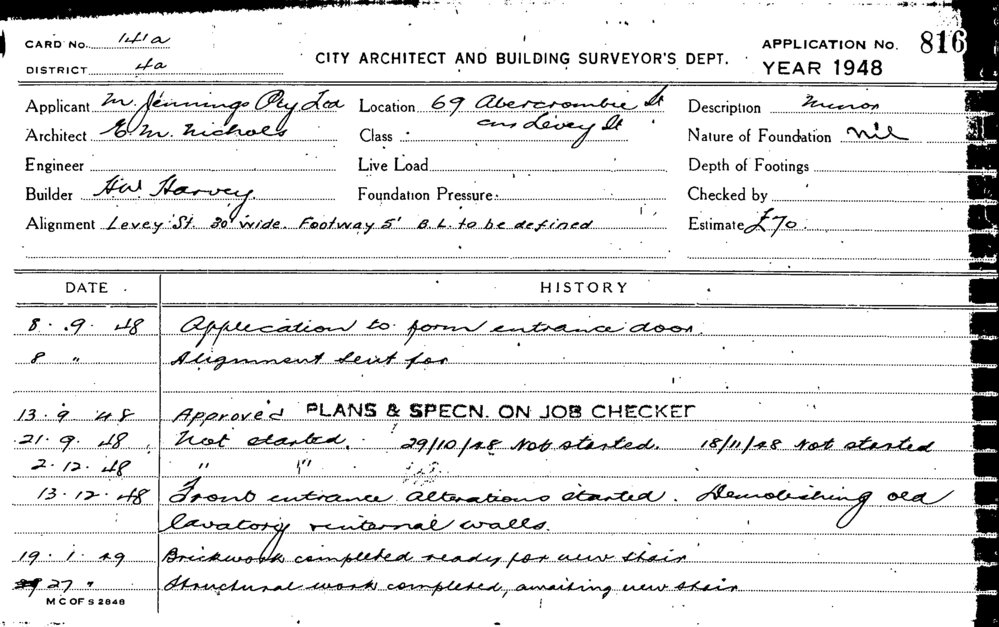 CARD No. 141a
DISTRICT 4a
CITY ARCHITECT AND BUILDING SURVEYOR'S DEPT.
APPLICATION No. 816
YEAR 1948
Applicant M. Jennings Pty Ltd Location 69 Abercrombie St Description Minor
Architect E. M. Nichols Class cnr Levey St Nature of Foundation Nil
Engineer Live Load Depth of Footings
Builder H W Harvey Foundation Pressure Checked by
Alignment Levey St. 30' wide. Footway 5' B.L. to be defined Estimate £70
DATE HISTORY
8. 9. 48 Application to form entrance door.
8 " Alignment sent for
13. 9 48 Approved PLANS & SPECN. ON JOB CHECKET
21. 9. 48 Not started. 29/10/48 Not started. 18/11/48 Not started
2. 12. 48 " "
13. 12. 48 Front entrance alterations started. Demolishing old
lavatory & internal walls.
19. 1. 49 Brickwork completed ready for new stair
27 " Structural work completed, awaiting new stair
M C OF S 2848